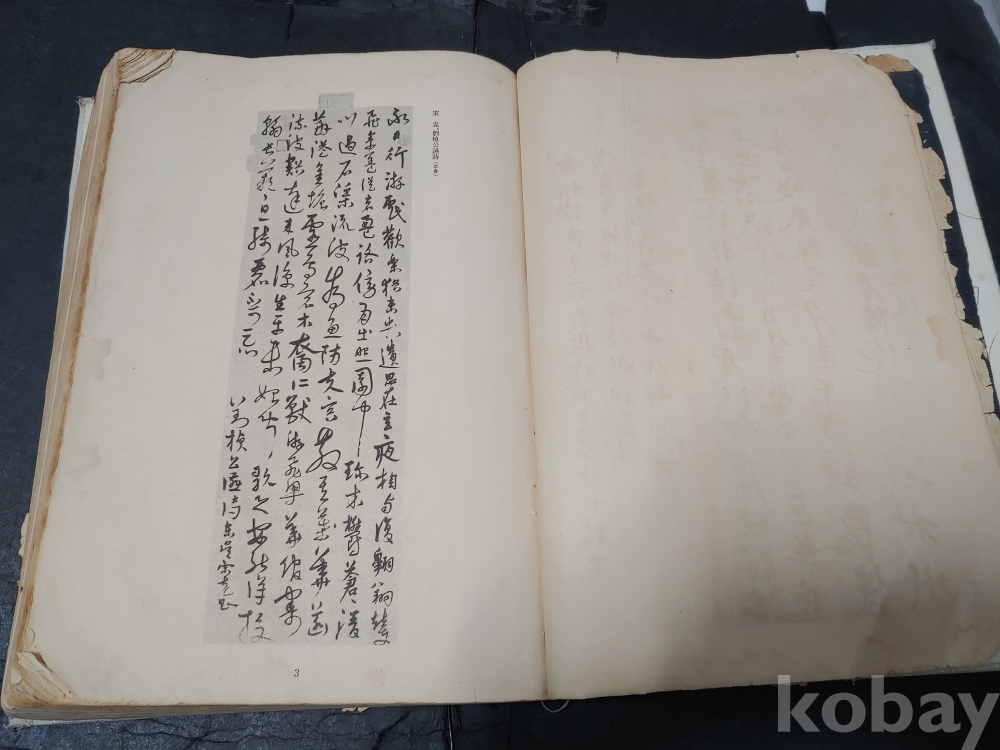 宋 克 劉楨公讌詩（草書）
永日行游戲歡樂猶未央遺思在玄夜相與復翱翔輦車
飛素蓋從者盈路傍月出照園中珍木鬱蒼〻清
川過石渠流波為魚防芙蓉散其華菡
萏溢金塘靈鳥宿水裔仁獸游飛梁華館寄
流波豁達來風涼生平未始聞歌之安能詳投
翰長歎息綺麗不可忘
劉楨公讌詩東吳宋克書
3
kobay